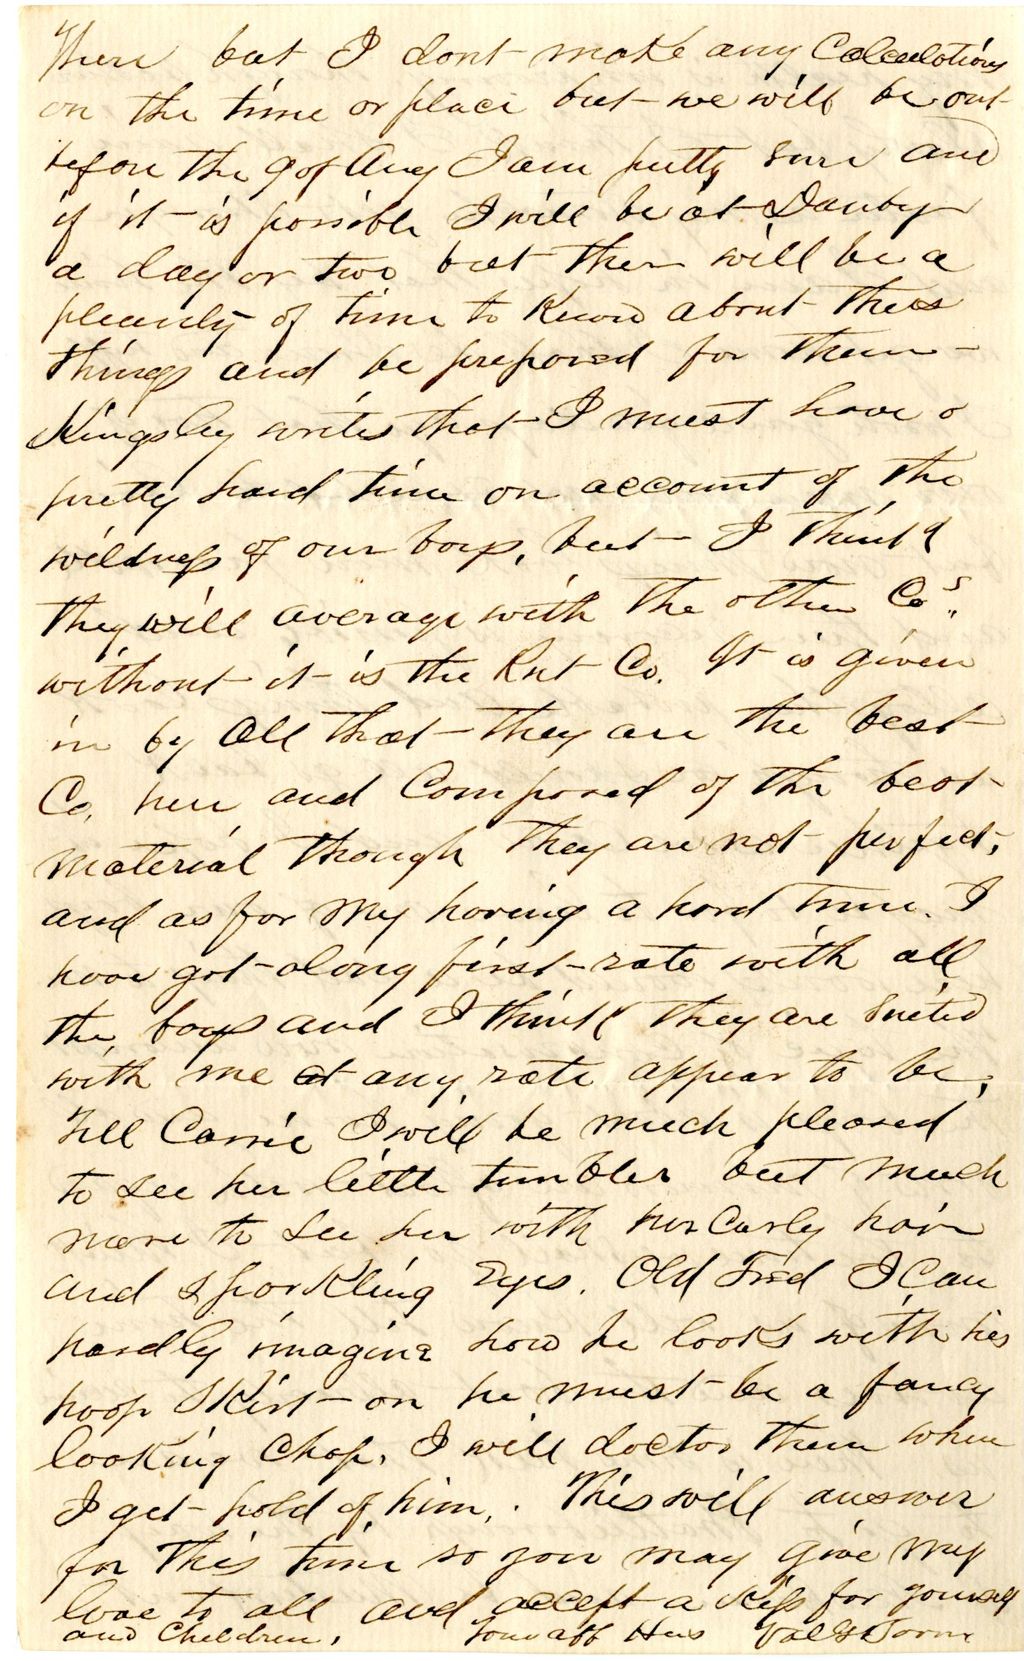 there but I dont make any Calculations
on the time or place but we will be out
before the 9 of Aug I am pretty sure and
if it is possible I will be at Danby
a day or two but there will be a
pleanty of time to Know about thes
things and be prepared for them
Kingsley writes that I must have a
pretty hard time on account of the
wildness of our boys, but I think
they will average with the other Cos.
without it is the Rut Co. It is given
in by All that they are the best
Co, here and Composed of the best
material though they are not perfect,
and as for My having a hard time. I
have got along first-rate with all
the boys and I think they are Suited
with me at any rate appear to be,
Tell Carrie I will be much pleased
to see her little tumbler but much
more to see her with her Curly hair
and sparkling Eyes. Old Fred I Can
hardly imagine how he looks with his
hoop Skirt on he must be a fancy
looking Chap, I will doctor them when
I get hold of him,. This will answer
for this time so you may give my
love to all and accept a Kiss for yourself
and Children, Your aff Hus